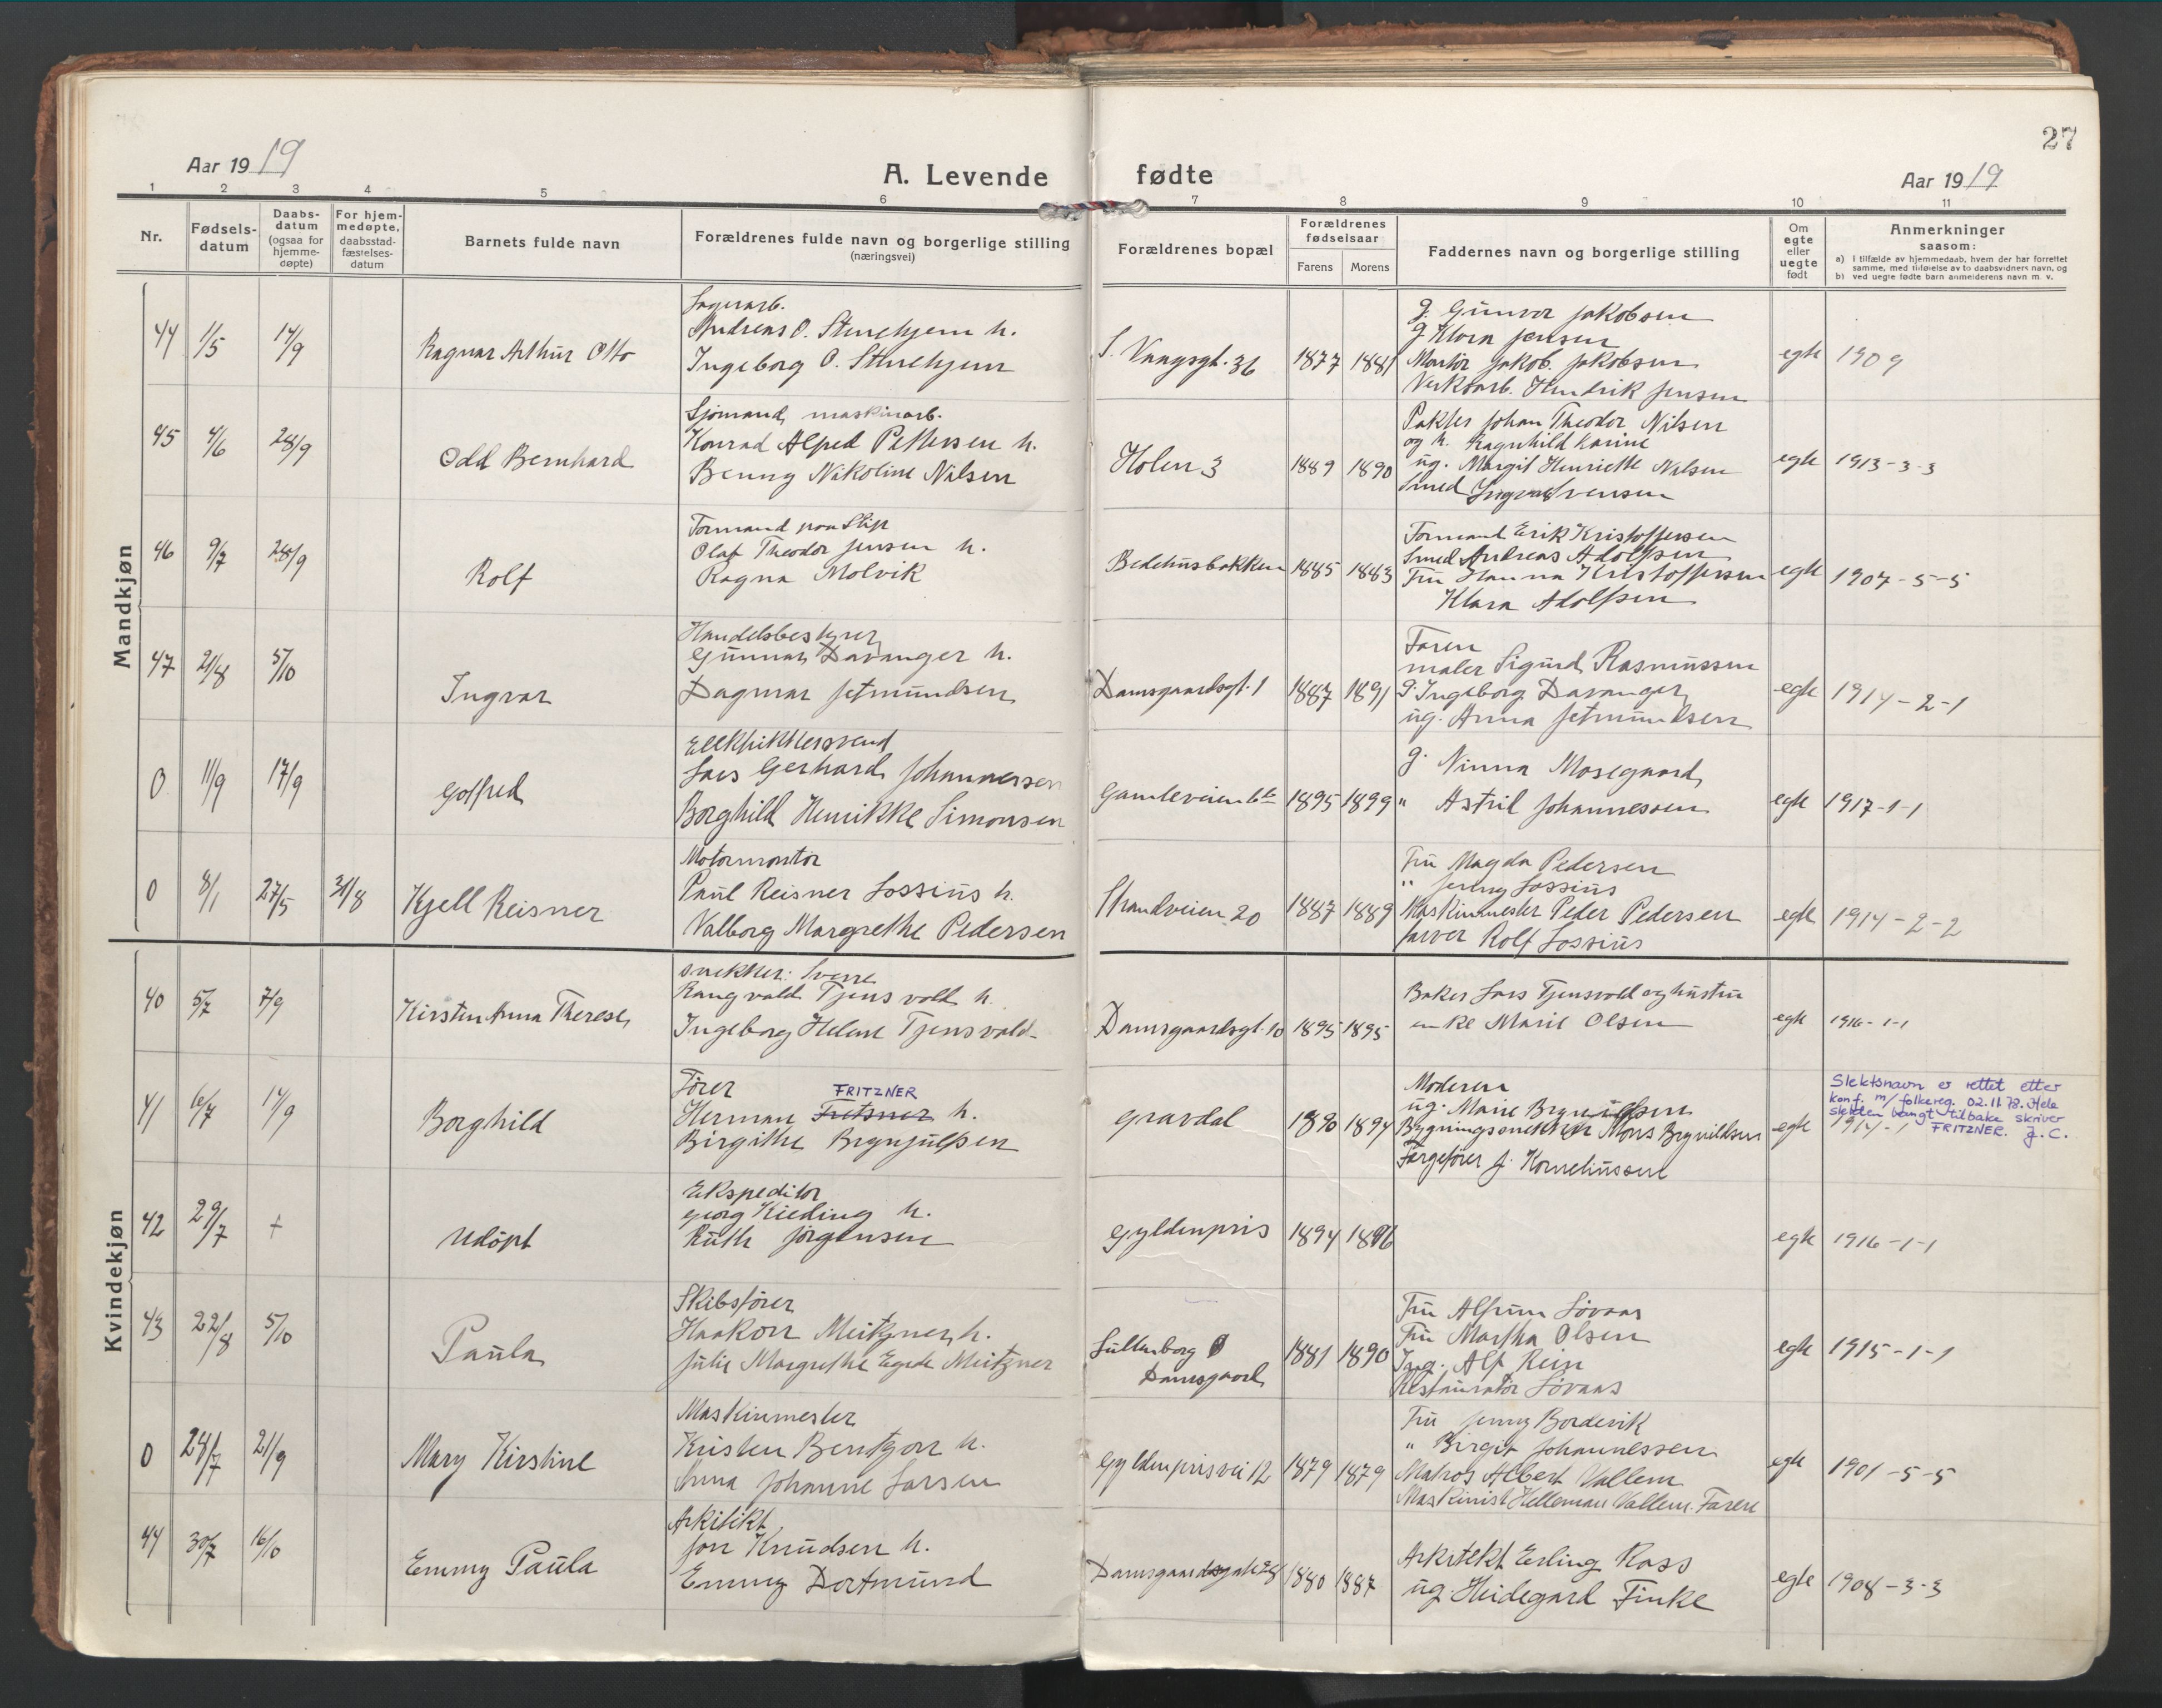 27
Aar 1919
A. Levende fødte
Aar 1919
1 2 3 4 5 6 7 8 9 10 11
Nr.
Fødsels-
datum
Daabs-
datum
(ogsaa for
hjemme-
døpte)
For hjem-
medøpte,
daabsstad-
fæstelses-
datum
Barnets fulde navn
Forældrenes fulde navn og borgerlige stilling
(næringsvei)
Forældrenes bopæl
Forældrenes
fødselsaar
Farens Morens
Faddernes navn og borgerlige stilling
Om
egte
eller
uegte
født
Anmerkninger
saasom:
a) i tilfælde av hjemmedaab, hvem der har forrettet
samme, med tilføielse av to daabsvidners navn, og
b) ved uegte fødte barn anmelderens navn m. v.
Mandkjøn
44 1/5 14/9 Ragnar Arthur Otto
Lagerarb.
Andreas O. Stenehjem h.
Ingeborg O. Stenehjem
S. Vaagsgt. 36 1877 1881
g. Gunvor Jakobsen
g. Klara Jensen
Montør Jakob Jakobsen
Verksarb. Hendrik Jensen
egte 1909
45 4/6 28/9 Odd Bernhard
Sjømand, maskinarb.
Konrad Alfred Pettersen h.
Benny Nikoline Nilsen
Holen 3 1889 1890
Pakker Johan Theodor Nilsen
og h. Ragnhild Karine
ug. Margit Henriette Nilsen
Smed Ingvald Svensen
egte 1913-3-3
46 9/7 28/9 Rolf
Formand paa Slip
Olaf Theodor Jensen h.
Ragna Molvik
Bedehusbakken 1885 1883
Formand Erik Kristoffersen
Smed Andreas Adolfsen
Fru Hanna Kristoffersen
Klara Adolfsen
egte 1907-5-5
47 21/8 5/10 Ingvar
Handelsbestyrer
Gunnar Davanger h.
Dagmar Jetmundsen
Damsgaardsgt. 1 1887 1891
Faren
maler Sigurd Rasmussen
g. Ingeborg Davanger
ug. Anna Jetmundsen
egte 1914-2-1
0 11/9 17/9 Golfred
Elektrikkersvend
Lars Gerhard Johannessen
Borghild Henrikke Simonsen
Gamleveien 6 1895 1899
g. Ninna Mosegaard
" Astrid Johannessen
egte 1917-1-1
0 8/1 27/5 31/8 Kjell Reisner
Motormontør
Paul Reisner Lossius h.
Valborg Margrethe Pedersen
Strandveien 20 1887 1889
Fru Magda Pedersen
" Jenny Lossius
Maskinmester Peder Pedersen
farver Rolf Lossius
egte 1914-2-2
Kvindekjøn
40 5/7 7/9 Kirsten Anna Therese
snekker: Sverre
Rangvald Tjensvold h.
Ingeborg Helene Tjensvold
Damsgaardsgt. 10 1895 1895
Baker Lars Tjensvold og hustru
enke Marie Olsen
egte 1916-1-1
41 6/7 14/9 Borghild
Fører
FRITZNER
Herman Fretsner h.
Birgithe Brynjulfsen
Gravdal 1890 1894
Moderen
ug. Marie Brynildsen
Bygningssnekker Mons Brynildsen
Fergefører J. Korneliussen
egte 1914-1
Slektsnavn er rettet etter
konf. m/folkereg. 02.11.78. Hele
slekten langt tilbake skriver
FRITZNER. J.C.
42 29/7 + Udøpt
Ekspeditør
Georg Kieding h.
Ruth Jørgensen
Gyldenpris 1894 1896
egte 1916-1-1
43 22/8 5/10 Paula
Skibsfører
Haakon Meitzner h.
Julie Margrethe Egede Meitzner
Lullenborg
Damsgaard 1881 1890
Fru Martha Olsen
Ing. Alf Rein
Restauratør Løvaas
egte 1915-1-1
0 24/7 21/9 Mary Kirstine
Maskinmester
Kristen Bentzon h.
Anna Johanne Larsen
Gyldenprisvei 12 1879 1879
Fru Jenny Bordevik
" Birgit Johannessen
Matros Albert Vallem
Maskinist Helleman Vallem. Faren
egte 1901-5-5
44 30/7 16/10 Emmy Paula
Arkitekt
Jon Knudsen h.
Emmy Dortmund
Damsgaardsgate 28 1880 1887
Arkitekt Erling Ross
ug. Heidegard Finke
egte 1908-3-3